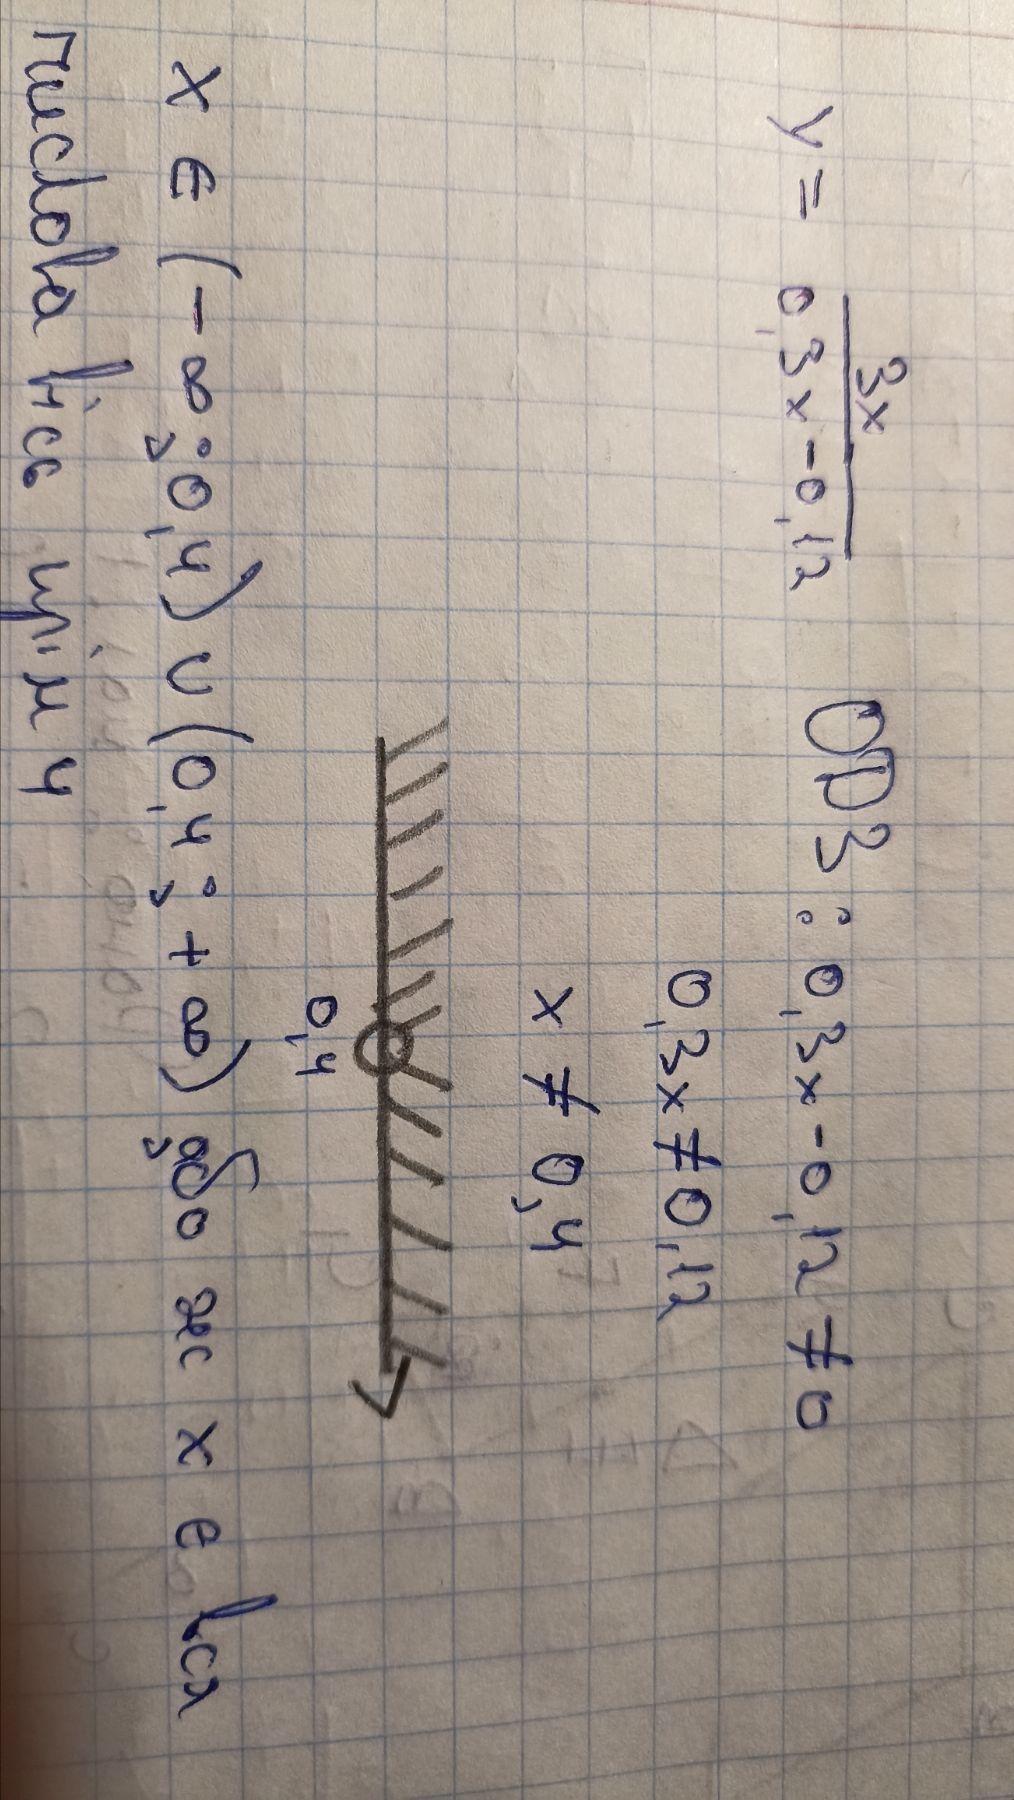 y = 3x / 0,3x-0,12 ОДЗ : 0,3x-0,12 ≠ 0
0,3x ≠ 0,12
x ≠ 0,4
0,4
x ∈ (-∞; 0,4) ∪ (0,4; +∞) або ж x є вся
числова вісь крім 4